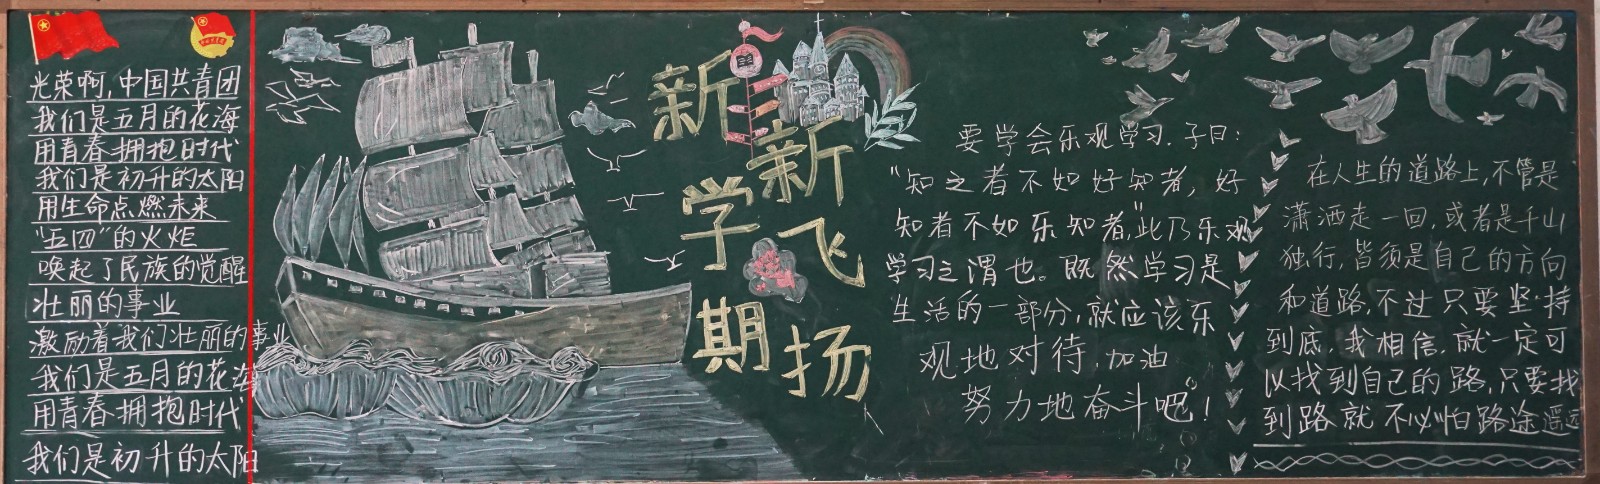 光荣啊,中国共青团
我们是五月的花海
用青春拥抱时代
我们是初升的太阳
用生命点燃未来
“五四”的火炬
唤起了民族的觉醒
壮丽的事业
激励着我们壮丽的事业
我们是五月的花海
用青春拥抱时代
我们是初升的太阳
新学期
新飞扬
要学会乐观学习.子曰:
“知之者不如好知者,好
知者不如乐知者,”此乃乐观
学习之谓也。既然学习是
生活的一部分,就应该乐
观地对待.加油
努力地奋斗吧”!
在人生的道路上,不管是
潇洒走一回,或者是千山
独行,皆须是自己的方向
和道路,不过只要坚持
到底,我相信,就一定可
以找到自己的路,只要找
到路就不必怕路途遥远